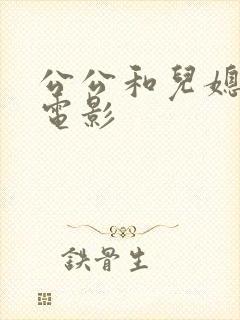 公公和兒媳
電影
鉄骨生